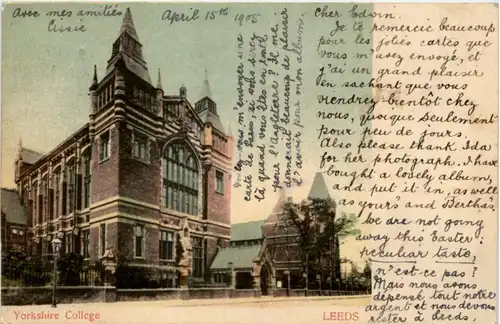 Avec mes amitiés
Cissie
April 15th 1905
Cher Edwin.
Je te remercie beaucoup
pour les jolies cartes que
vous m'avez envoyé, et
j'ai un grand plaisir
en sachant que vous
viendrez bientôt chez
nous, quoique seulement
pour peu de jours.
Also please thank Ida
for her photograph. I have
bought a lovely album,
and put it in, as well
as yours and Bertha's
We are not going
away this Easter:
peculiar taste,
n'est-ce pas?
Mais nous avons
dépensé tout notre
argent et nous devons
rester à Leeds,
mais peut-être
vous m'envoyer une
carte de Paris, ou serez
là quand vous êtes en route
pour l'Angleterre? Il me
donnerait beaucoup de plaisir
d'avoir pour mon album.
Yorkshire College
LEEDS